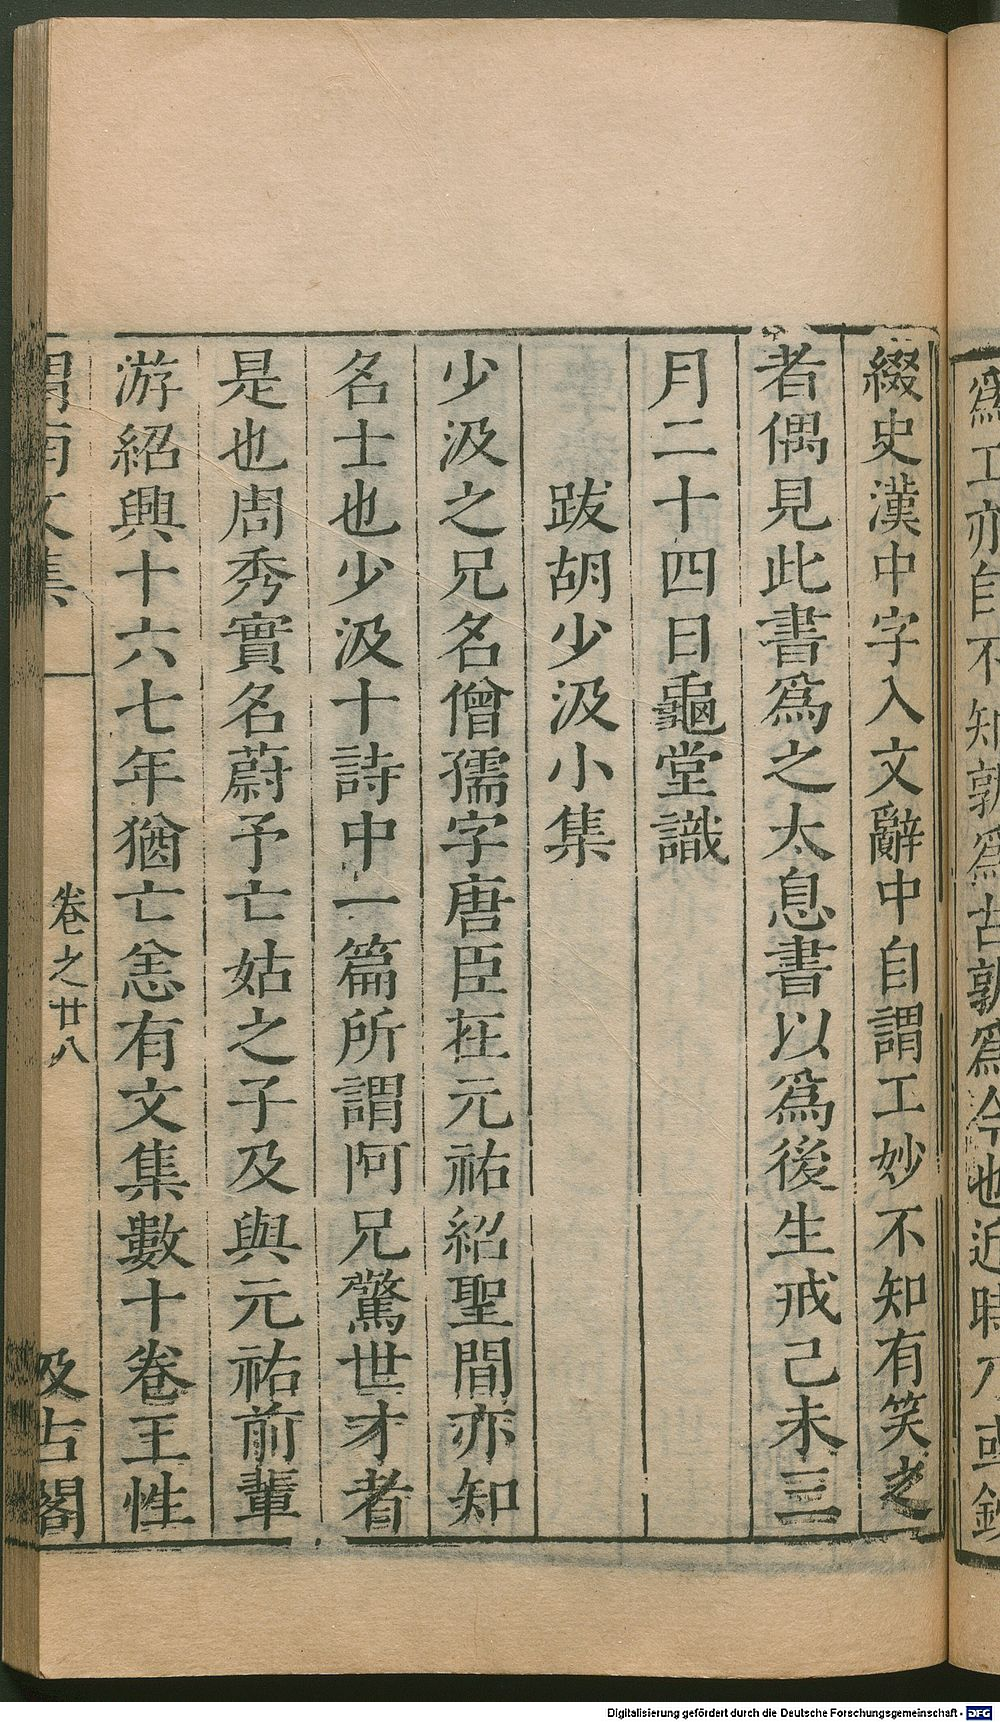 爲工亦自不知孰爲古孰爲今也近時
綴史漢中字入文辭中自謂工妙不知有笑之
者偶見此書爲之太息書以爲後生戒己未三
月二十四日龜堂識
跋胡少汲小集
少汲之兄名僧孺字唐臣在元祐紹聖間亦知
名士也少汲十詩中一篇所謂阿兄驚世才者
是也周秀實名蔚予亡姑之子及與元祐前輩
游紹興十六七年猶亡恙有文集數十卷王性
渭南文集
卷之廿八
汲古閣
Digitalisierung gefördert durch die Deutsche Forschungsgemeinschaft - DFG